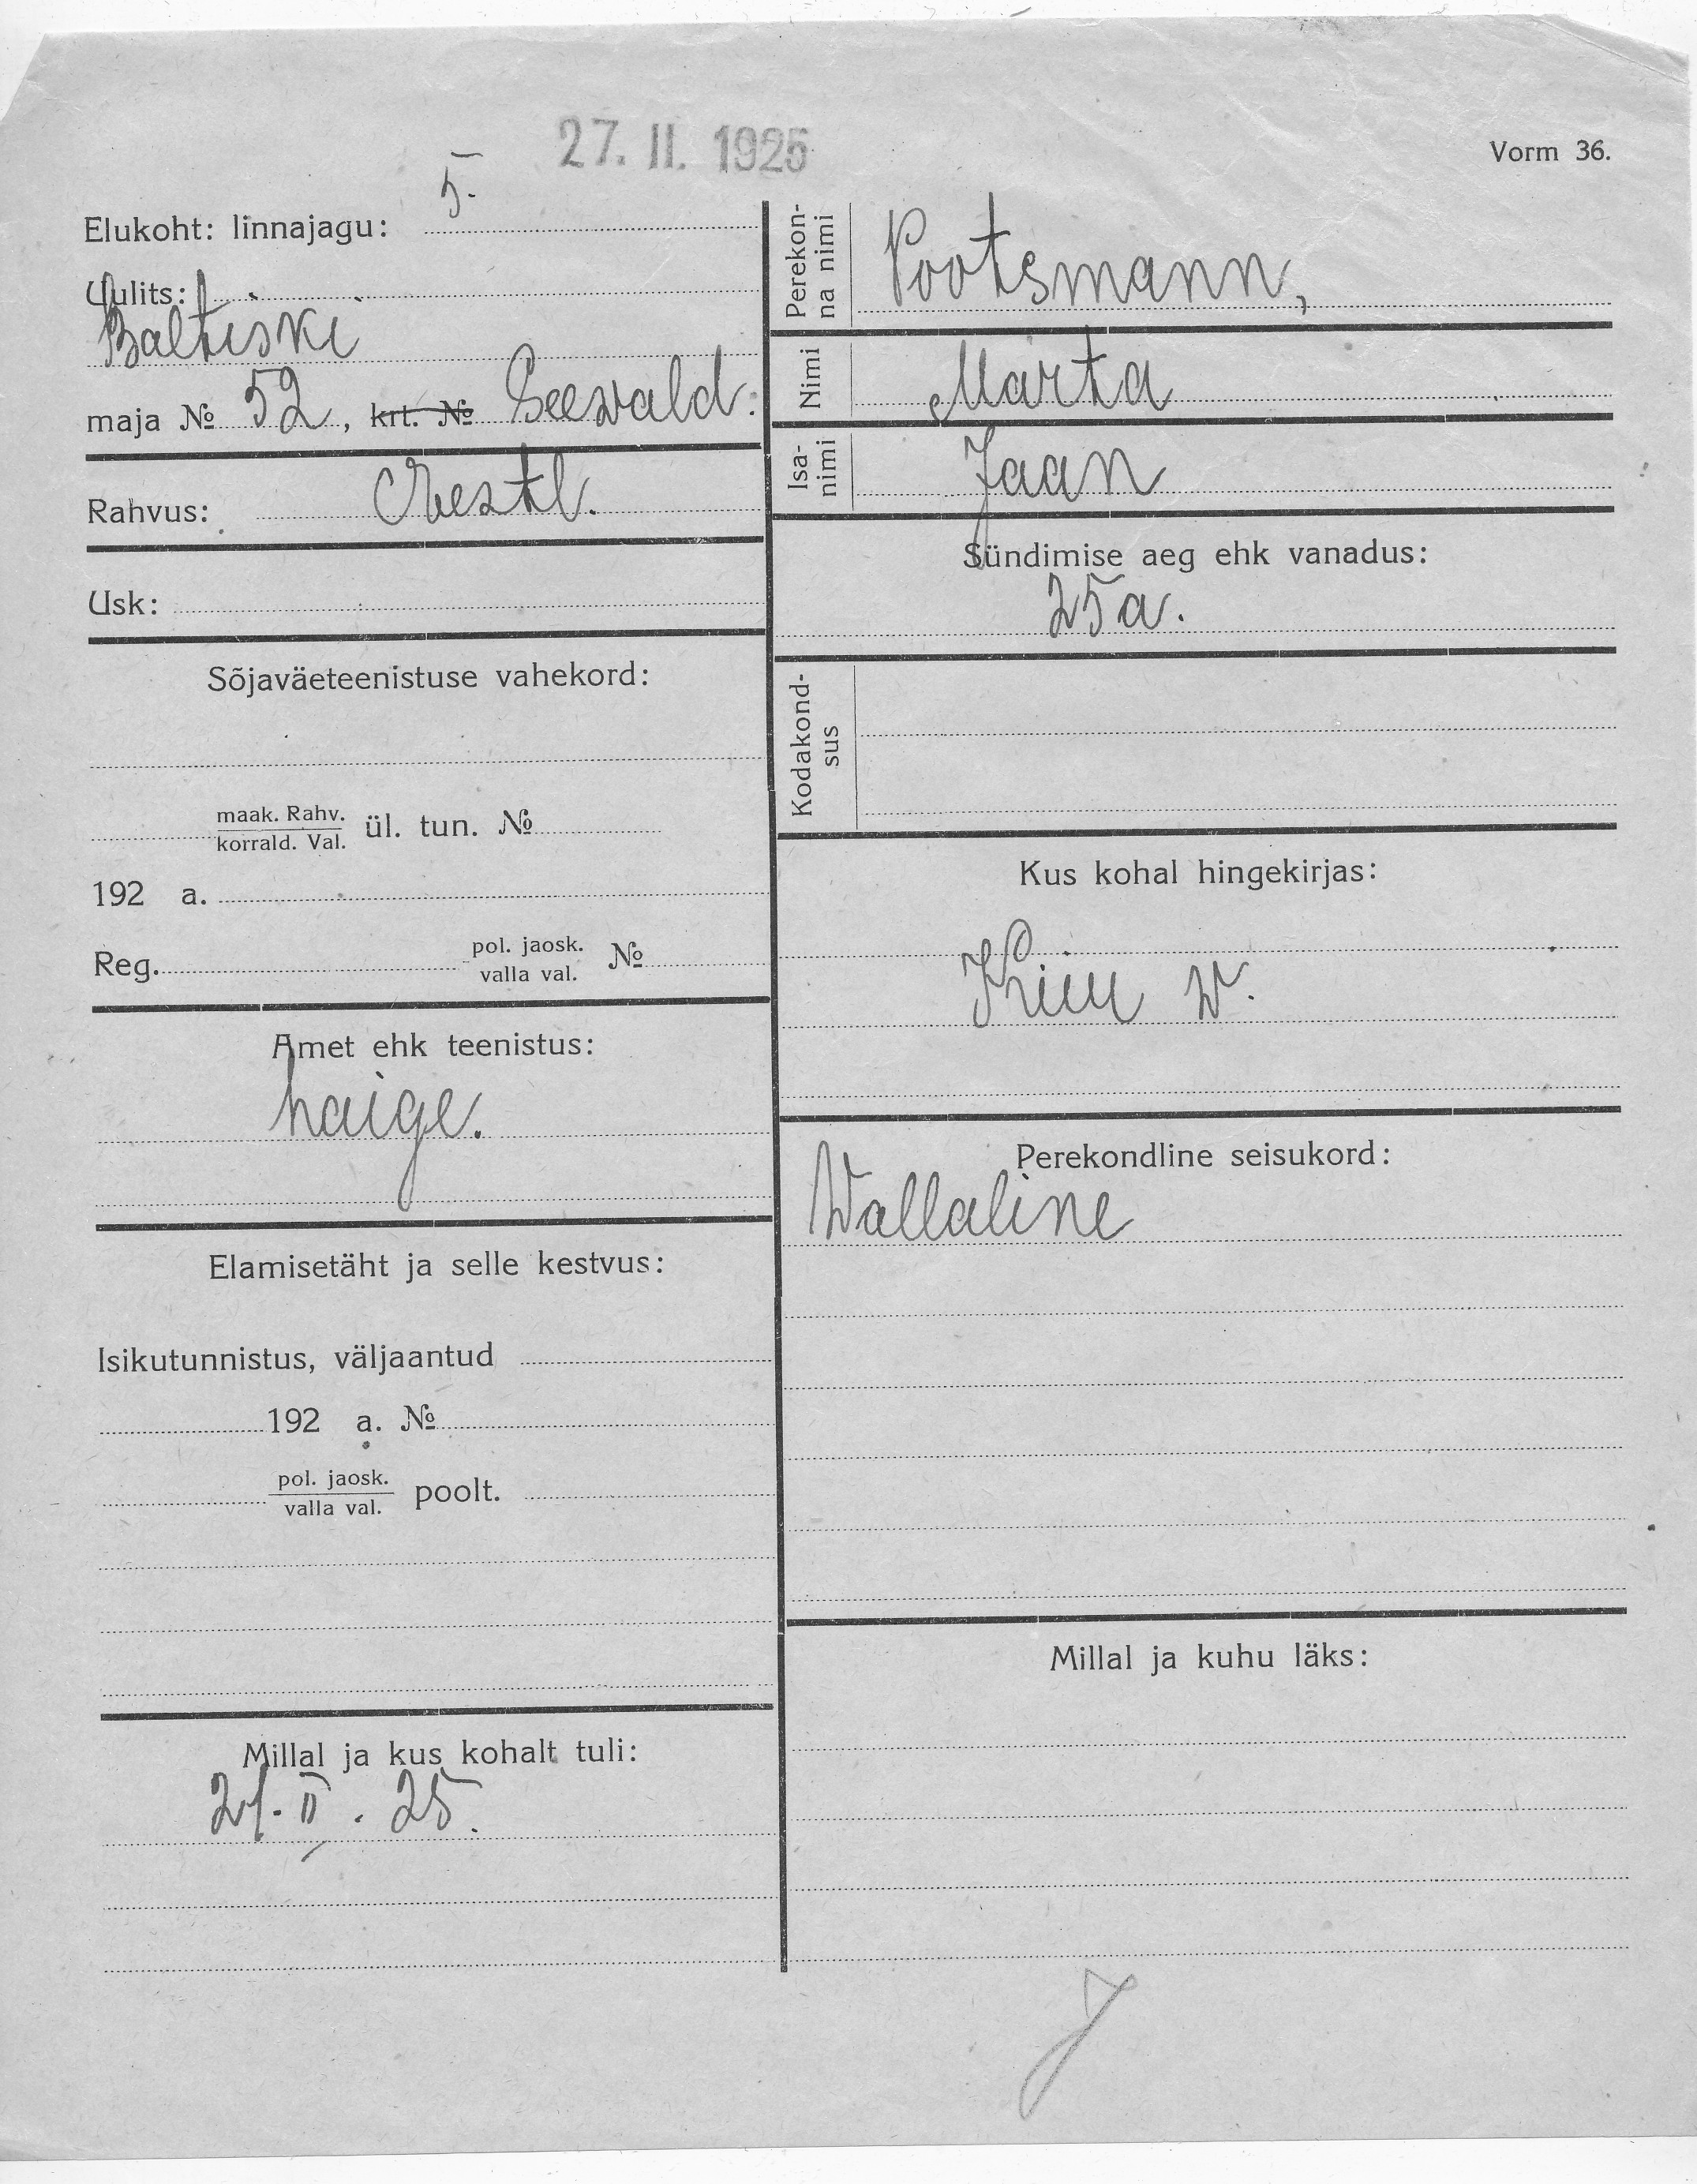 27. II. 1925
Vorm 36.
Elukoht: linnajagu: 5.
Uulits:
Baltiski
maja № 52, krt. № Seewald.
Rahvus: Eestl.
Usk:
Sõjaväeteenistuse vahekord:
maak. Rahv.
korrald. Val. ül. tun. №
192 a.
Reg. pol. jaosk.
valla val. №
Amet ehk teenistus:
haige.
Elamisetäht ja selle kestvus:
Isikutunnistus, väljaantud
192 a. №
pol. jaosk.
valla val. poolt.
Millal ja kus kohalt tuli:
21. II. 25.
Perekon-
na nimi Pootsmann,
Nimi Marta
Isa-
nimi Jaan
Sündimise aeg ehk vanadus:
25 a.
Kodakond-
sus
Kus kohal hingekirjas:
W.
Perekondline seisukord:
Wallaline
Millal ja kuhu läks: